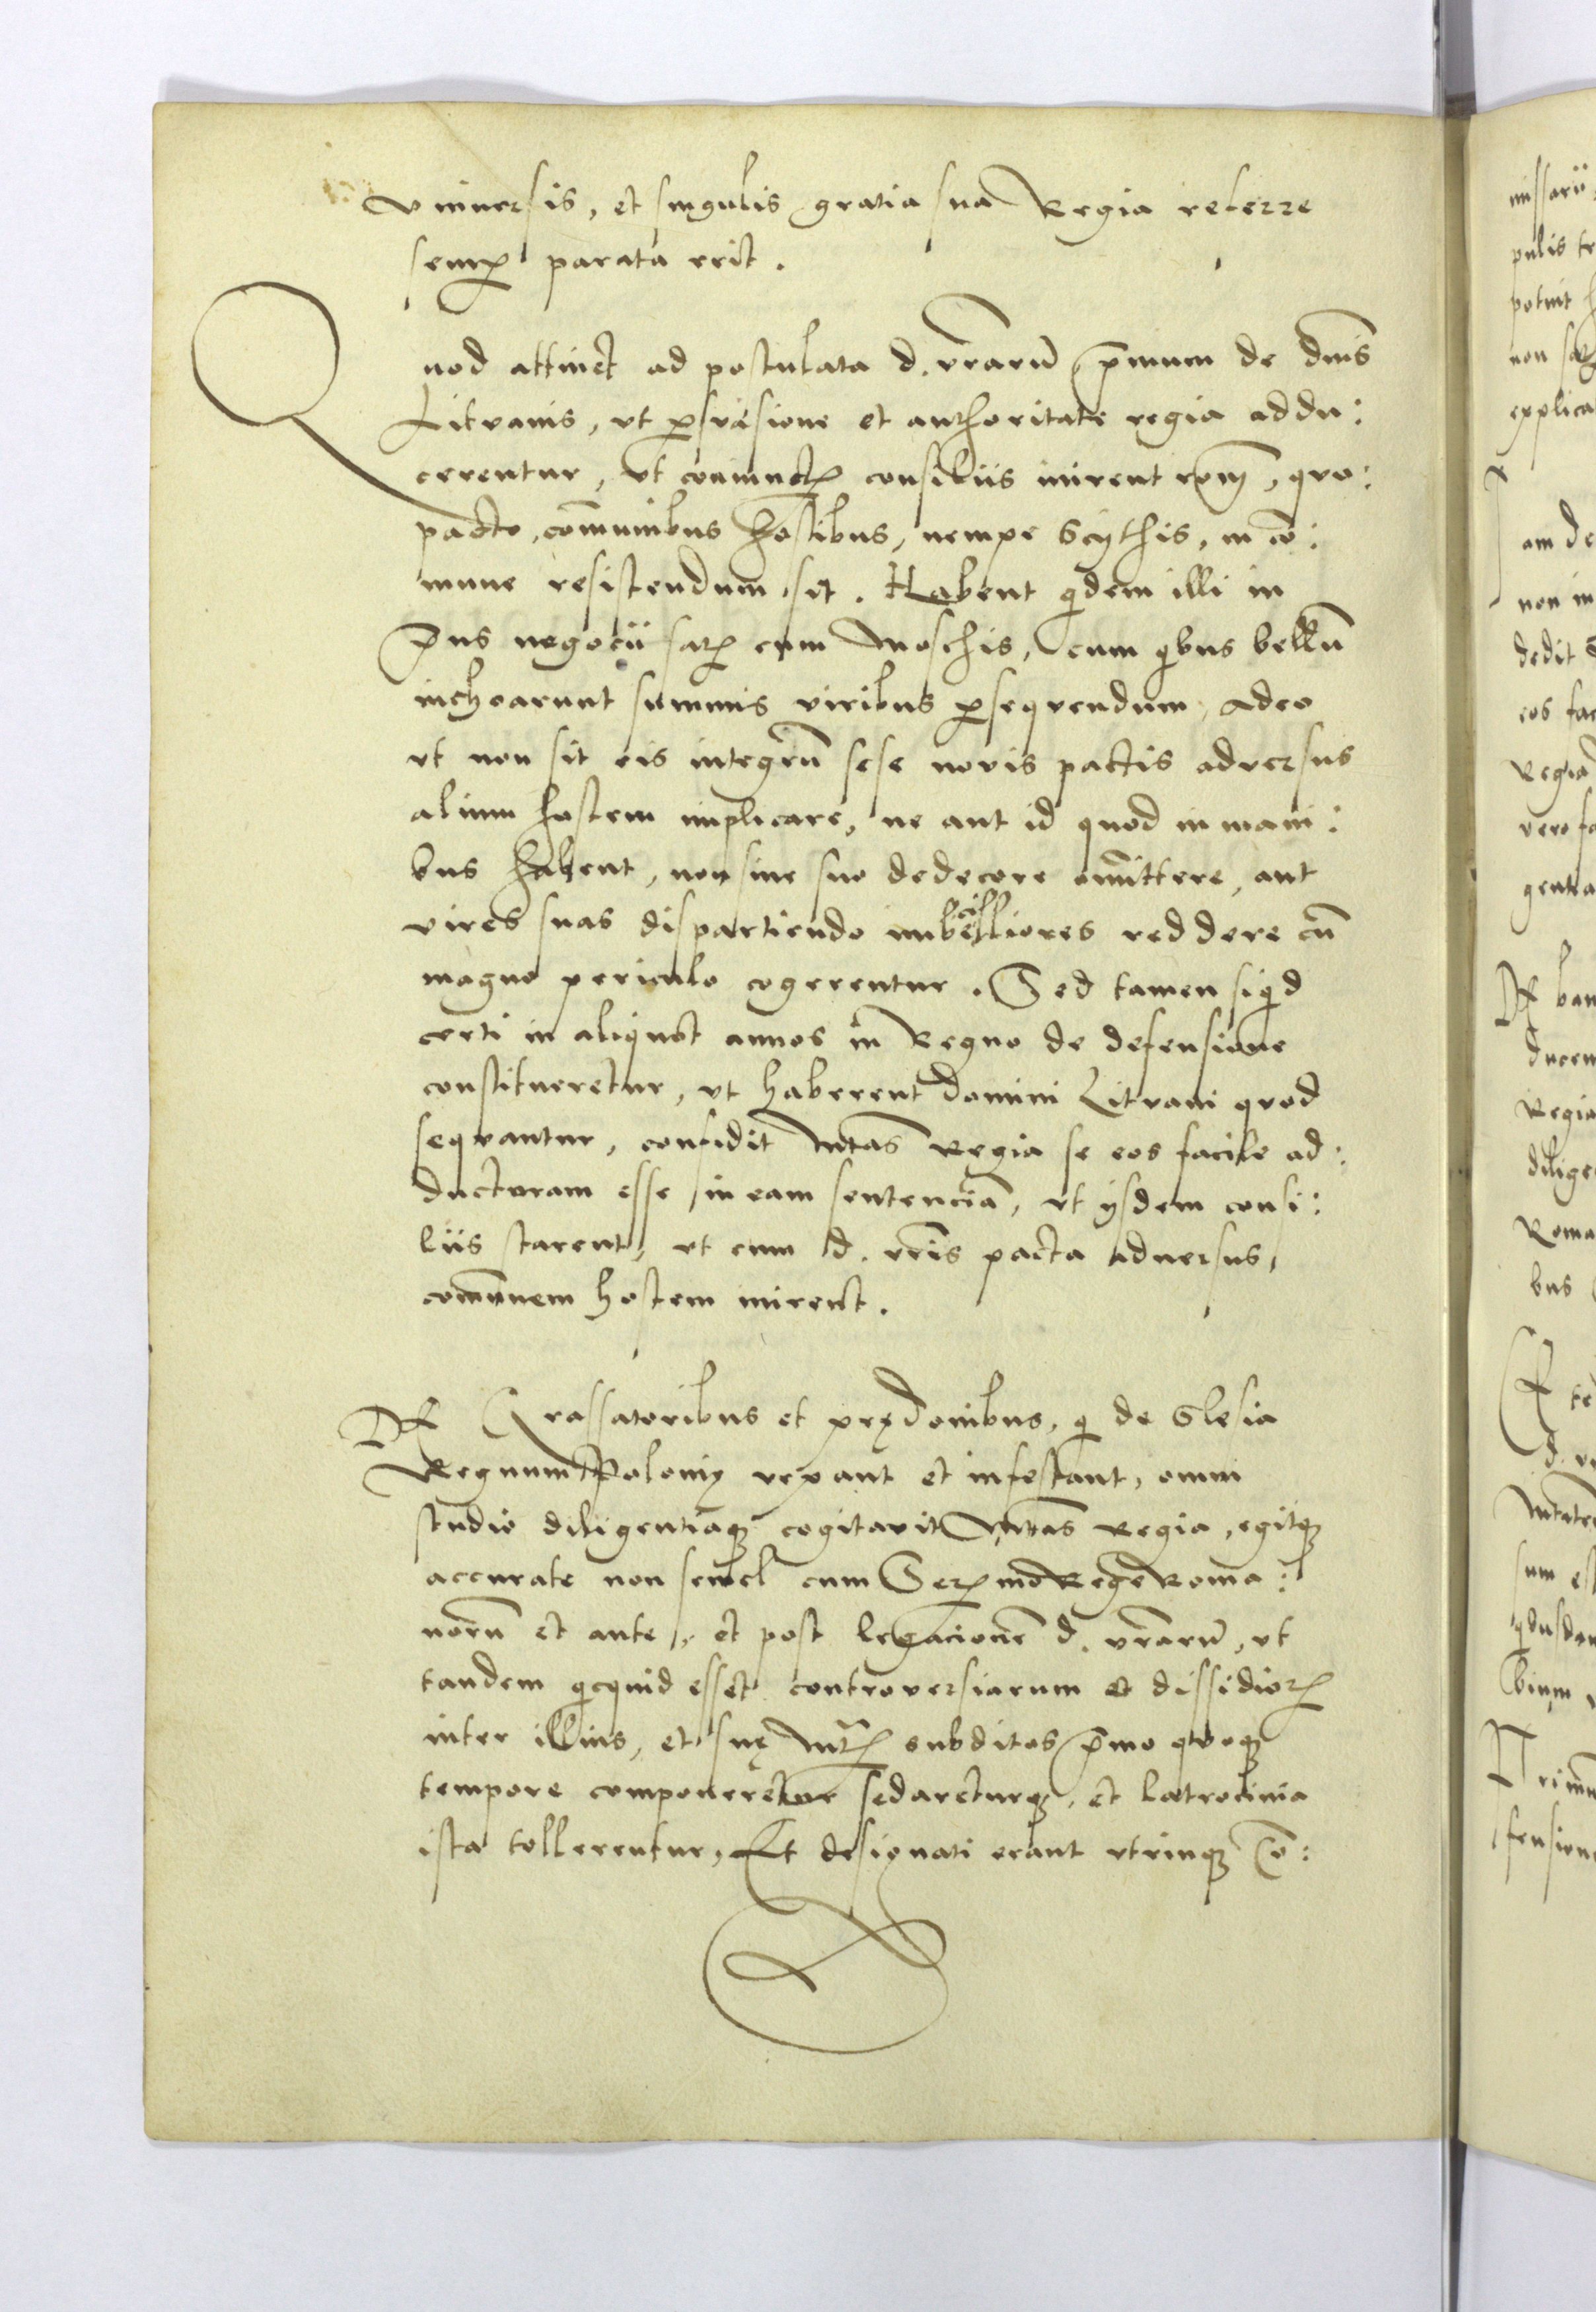 vniuersis, et singulis gratia sua Regia referre
semꝑ parata erit.
Quod attinet ad postulata d. vrarū p̄mum de dnis
Lituanis, vt ꝑsuasione et authoritate regia addu:
cerentur, vt coniunctꝭ consiliis inirent ronē, quo:
pacto, com̄unibus hostibus, nempe Scythis, in cō:
mune resistendum sit. Habent qdem illi in
p̄ns negocii satꝭ cum Moschis, cum qbus bellū
inchoarunt summis viribus ꝑsequendum, adeo
vt non sit eis integrū sese novis pactis adversus
alium hostem implicare, ne aut id quod in mani:
bus habent, non sine suo dedecore omittere, aut
vires suas dispartiendo imbecilliores reddere cū
magno periculo cogerentur. Sed tamen siqd
certi in aliquot annos in Regno de defensione
constitueretur, vt haberent domini Lituani quod
sequantur, confidit Mtas Regia se eos facile ad:
ducturam esse in eam sentenciā, vt ijsdem consi:
liis starent, vt cum d. vris pacta aduersus,
com̄unem hostem inirent.
DE Grassatoribus et prędonibus, q de Slesia
Regnum Polonię vexant et infestant, omni
studio diligentiaqꝫ cogitavit Mtas Regia, egitqꝫ
accurate non semel cum Serꝭmo Rege Roma:
norū et ante, et post legacionē d. vrarū, vt
tandem qcquid esset controversiarum et dissidiorꝭ
inter illius, et suę Mtꝭ subditos p̄mo quoqꝫ
tempore componeretur sedareturqꝫ, et latrocinia
ista tollerentur, Et designati erant vtrinqꝫ Cō:
missarii
pulis
potuit
explica
am de
non in
dedit
gentia
ducen
Regia
bus